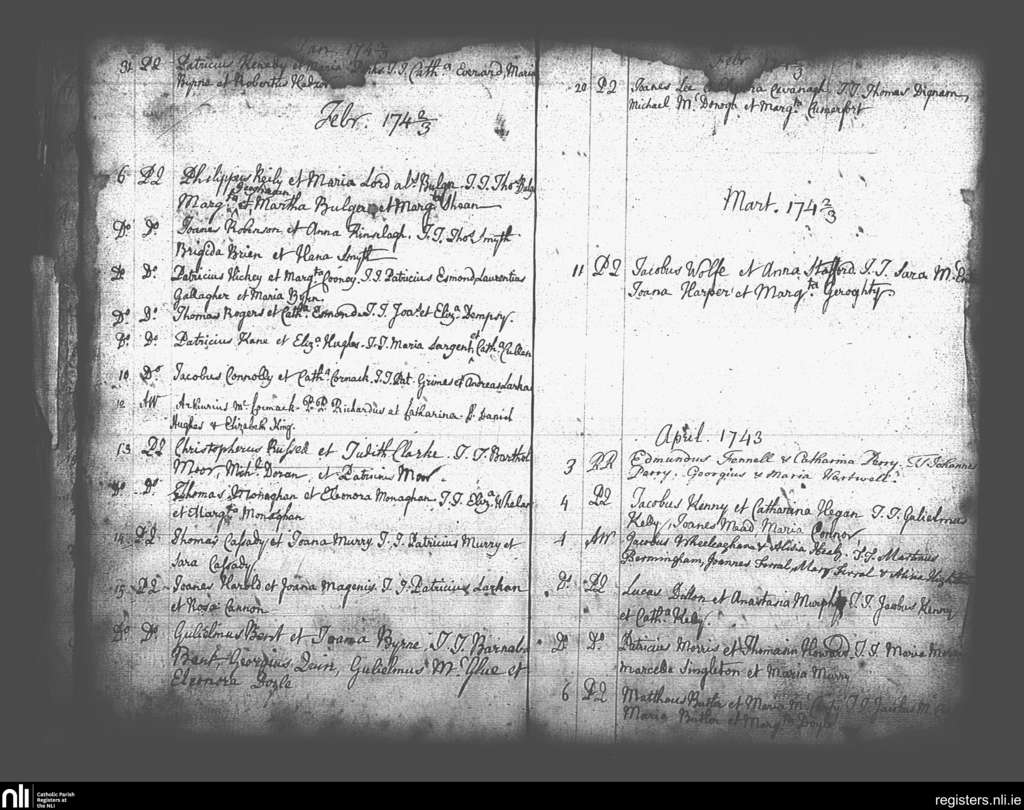 Jan. 174 2/3
31 PQ Patricius Kenedy et Maria T.T. Cath.a Everard, Maria
Byrne et Robertus
Febr. 174 2/3
6 PQ Philippus Reily et Maria Lord als Bulger. T.T. Thos Bulg
Geoghegan
Margta et, Martha Bulger et Margta Shean
Do Do Joanes Robinson et Anna Kinselagh. T.T. Thos Smyth
Brigida Brien et Elana Smyth
Do Do Patricius Hickey et Margta Cooney. T.T. Patricius Esmond, Laurentius
Gallagher et Maria
Do Do Thomas Rogers et Catha Esmond. T.T. Joas et Eliza Dempsy.
Do Do Patricius Kane et Eliza Hughes. T.T. Maria Sargent, et Catha Cullen
10 Do Jacobus Connolly et Catha Cormack. T.T. Pat. Grimes et Andreas Larka
12 AW Mc Cormack Richardus et Catharina Daniel
Hughes & Elizabeth King.
13 PQ Christopherus Russell et Judith Clarke. T.T. Barthol
Moor, Michl Doran, et Patricius Moor
Do Do Thomas Monaghan et Eleonora Monaghan. T.T. Eliza Whelan
et Margta Monaghan
14 PQ Thomas Cassady et Joana Murry T.T. Patricius Murry et
Sara Cassady.
15 PQ Joanes Harold et Joana Magenis. T.T. Patricius Larkan
et Rosa Cannon
Do Do Gulielmus Bent et Joana Byrne. T.T. Barnab
Bent, Georgius Quin, Gulielmus Mc Glue et
Eleonora Doyle
Febr. /3
20 PQ Joanes Lee Cavanagh. T.T. Thomas Dignam,
Michael Mc Donogh et Margta Cumerfort
Mart. 174 2/3
11 PQ Jacobus Wolfe et Anna Stafford. T.T. Sara
Joana Harper et Margta Geroghty
April. 1743
3 PR Edmundus Fennell & Catharina Perry. TT Johannes
Perry. Georgius & Maria Hartwell.
4 PQ Jacobus Kenny et Catharina Hegan T.T. Gulielmus
Kelly, Joanes Mead Maria Connor,
4 AW Jacobus & Alisia Healy. T.T. Matthaeus
Bermingham, Joannes Farral, Mary Farral &
Do PQ Lucas Dillon et Anastasia Murphy T.T. Jacobus Kenny
et Catha Kelly.
Do Do Patricius Morris et Thomasin Howard. T.T. Maria
Marcella Singleton et Maria Murry
6 PQ Matthaeus Butler et Maria T.T. Jacobus
Maria Butler et Margta Doyle
nli Catholic Parish
Registers at
the NLI
registers.nli.ie